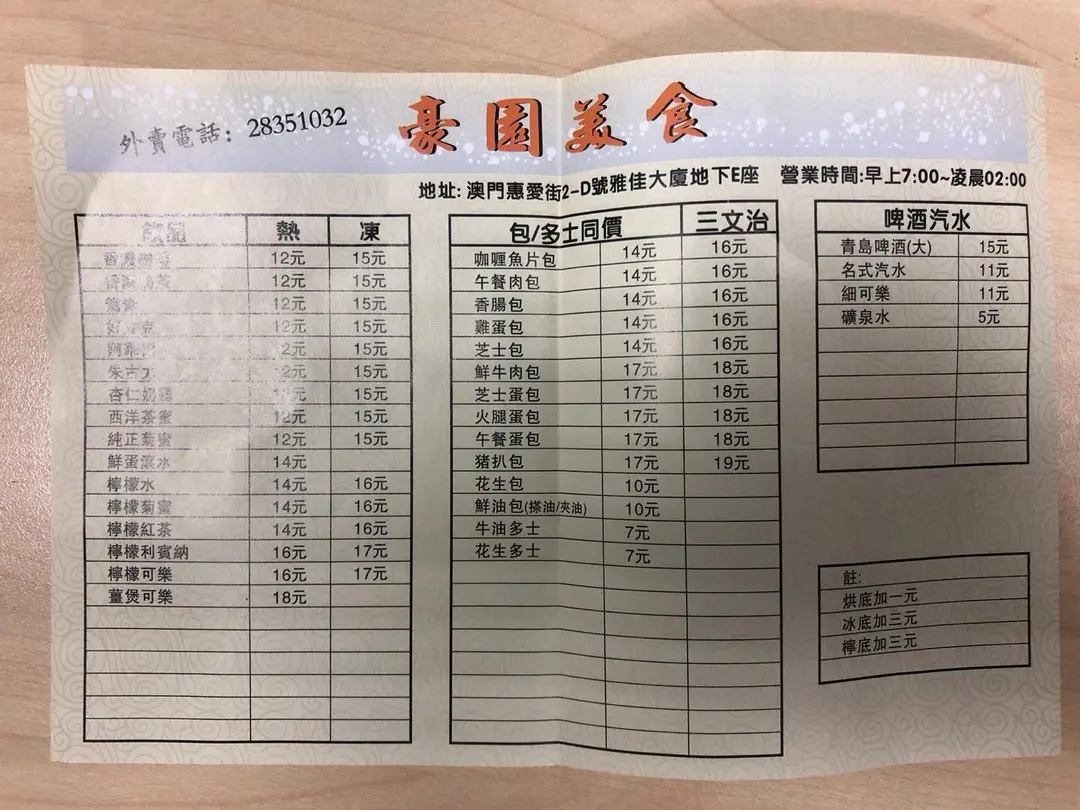 外賣電話: 28351032
豪園美食
地址: 澳門惠愛街2-D號雅佳大廈地下E座 營業時間:早上7:00~凌晨02:00
飲品 熱 凍
12元 15元
12元 15元
12元 15元
12元 15元
2元 15元
朱古力 2元 15元
杏仁奶露 15元
西洋茶蜜 12元 15元
純正菊蜜 12元 15元
鮮蛋滾水 14元
檸檬水 14元 16元
檸檬菊蜜 14元 16元
檸檬紅茶 14元 16元
檸檬利賓納 16元 17元
檸檬可樂 16元 17元
薑煲可樂 18元
包/多士同價 三文治
咖喱魚片包 14元 16元
午餐肉包 14元 16元
香腸包 14元 16元
雞蛋包 14元 16元
芝士包 14元 16元
鮮牛肉包 17元 18元
芝士蛋包 17元 18元
火腿蛋包 17元 18元
午餐蛋包 17元 18元
猪扒包 17元 19元
花生包 10元
鮮油包(搽油/夾油) 10元
牛油多士 7元
花生多士 7元
啤酒汽水
青島啤酒(大) 15元
名式汽水 11元
細可樂 11元
礦泉水 5元
註:
烘底加一元
冰底加三元
檸底加三元